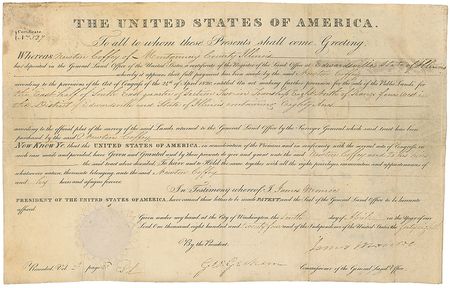 THE UNITED STATES OF AMERICA.
Certificate
To all to whom these Presents shall come, Greeting.
Whereas Newton Coffey of Montgomery County Illinois
has deposited in the General Land Office of the United States, a certificate of the Register of the Land Office at Edwardsville State of Illinois
whereby it appears that full payment has been made by the said Newton Coffey
according to the provisions of the Act of Congress of the 24th of April, 1820, entitled An act making further provision for the sale of the Public Lands, for
the East half of South
District of Edwardsville and State of Illinois containing Eighty Acres
according to the official plat of the survey of the said Lands returned to the General Land Office by the Surveyor General, which said tract has been
purchased by the said Newton Coffey
Now Know Ye, that the UNITED STATES OF AMERICA, in consideration of the Premises, and in conformity with the several acts of Congress, in
such case made and provided, have Given and Granted, and by these presents do give and grant, unto the said Newton Coffey and to his heirs
the said tract above described: To have and to Hold the same, together with all the rights, privileges, immunities, and appurtenances of
whatsoever nature, thereunto belonging, unto the said Newton Coffey
and his heirs and assigns forever.
In Testimony whereof, I, James Monroe
PRESIDENT OF THE UNITED STATES OF AMERICA, have caused these letters to be made PATENT, and the Seal of the General Land Office to be hereunto
affixed.
Given under my hand at the City of Washington, the day of in the Year of our
Lord One thousand eight hundred and and of the Independence of the United States the
By the President,
James Monroe
Recorded, Vol. page Geo: Graham Commissioner of the General Land Office.